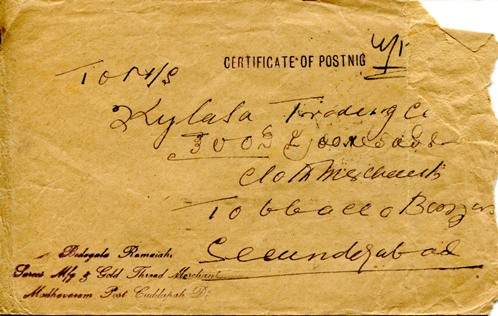 CERTIFICATE OF POSTNIG
To M/S
Kylasa Trading Co
3003
Cloth Merchants
Tobbacco Bazzar
Secunderabad
Bidegala Ramaiah
Sarees Mfg & Gold Thread Merchant
Madhavaram Post Cuddapah D